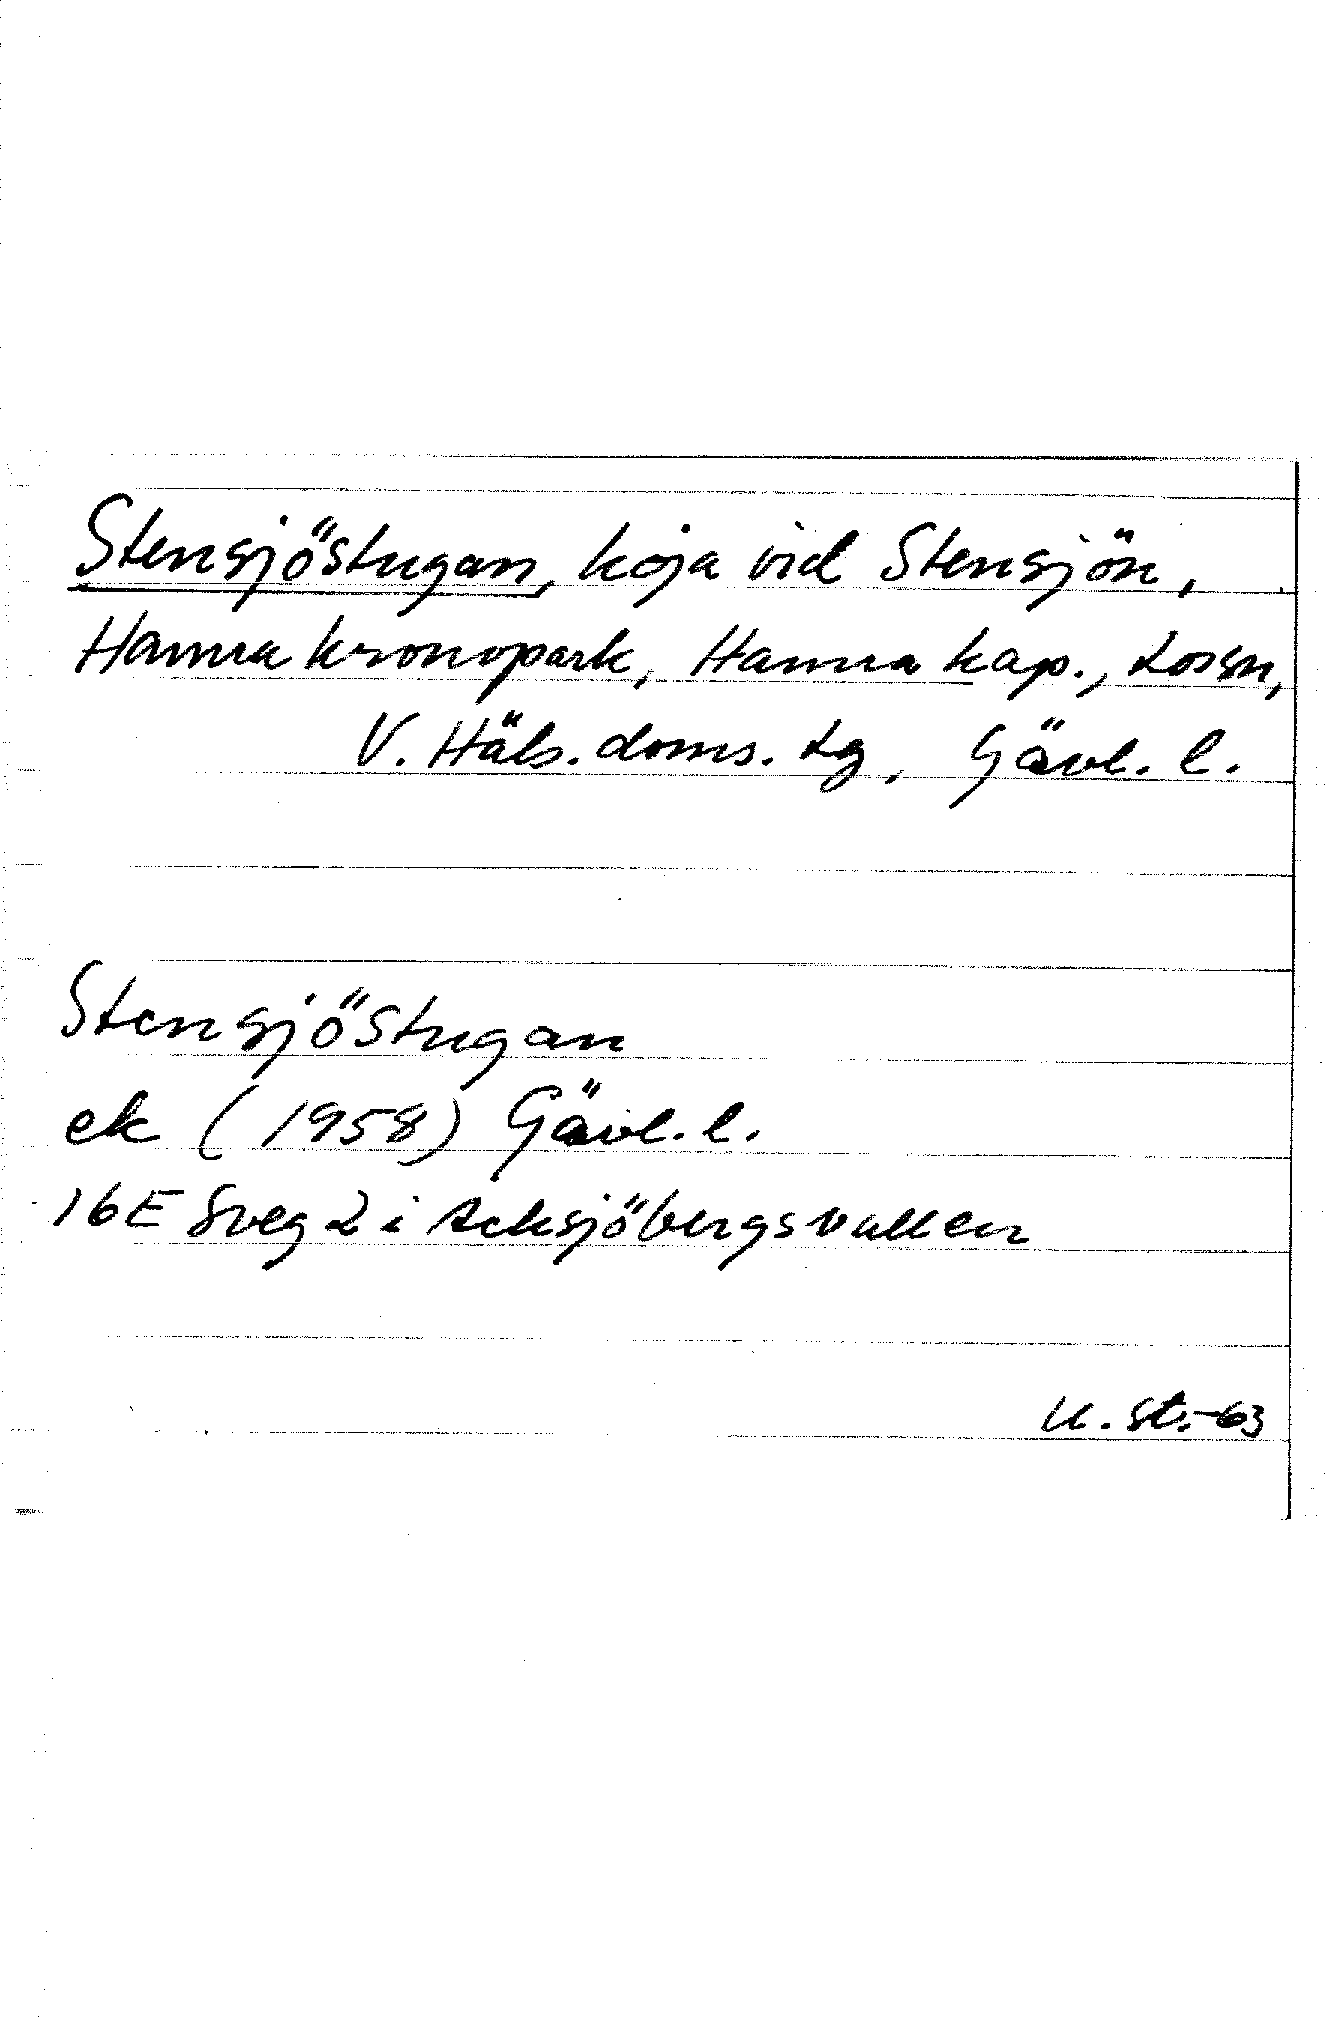 Stensjöstugan, koja vid Stensjön,
Hamra kronopark, Hamra kap., Los sn,
V. Häls. doms. tg, Gävl. l.
Stensjöstugan
ek (1958) Gävl. l.
16E Sveg 2 i Acksjöbergsvallen
U. St. -63